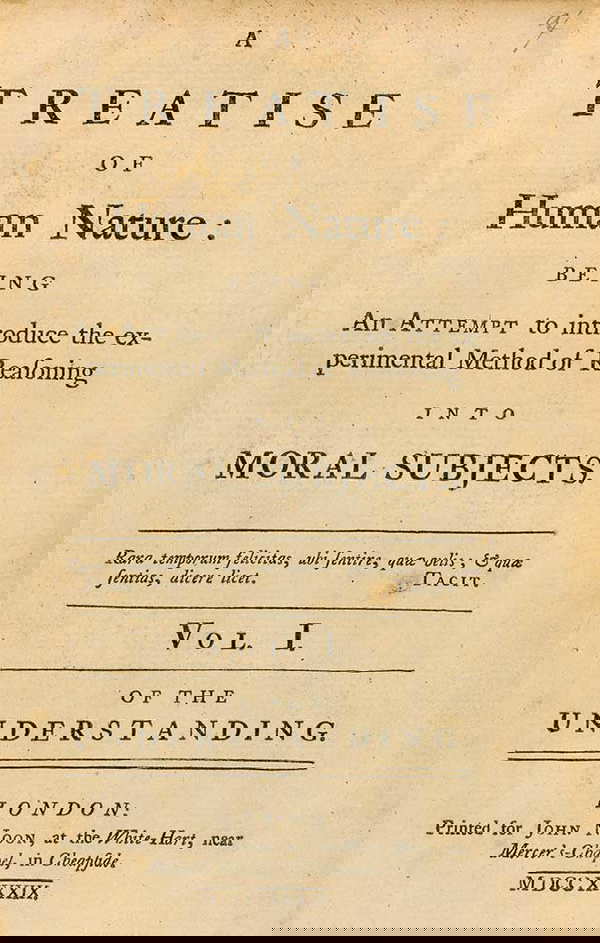 A
TREATISE
OF
Human Nature:
BEING
An ATTEMPT to introduce the ex-
perimental Method of Reaſoning
INTO
MORAL SUBJECTS.
Rara temporum felicitas, ubi ſentire, quæ velis; & quæ
ſentias, dicere licet. TACIT.
VOL. I.
OF THE
UNDERSTANDING.
LONDON:
Printed for JOHN NOON, at the White-Hart, near
Mercer's-Chapel, in Cheapſide.
MDCCXXXIX.